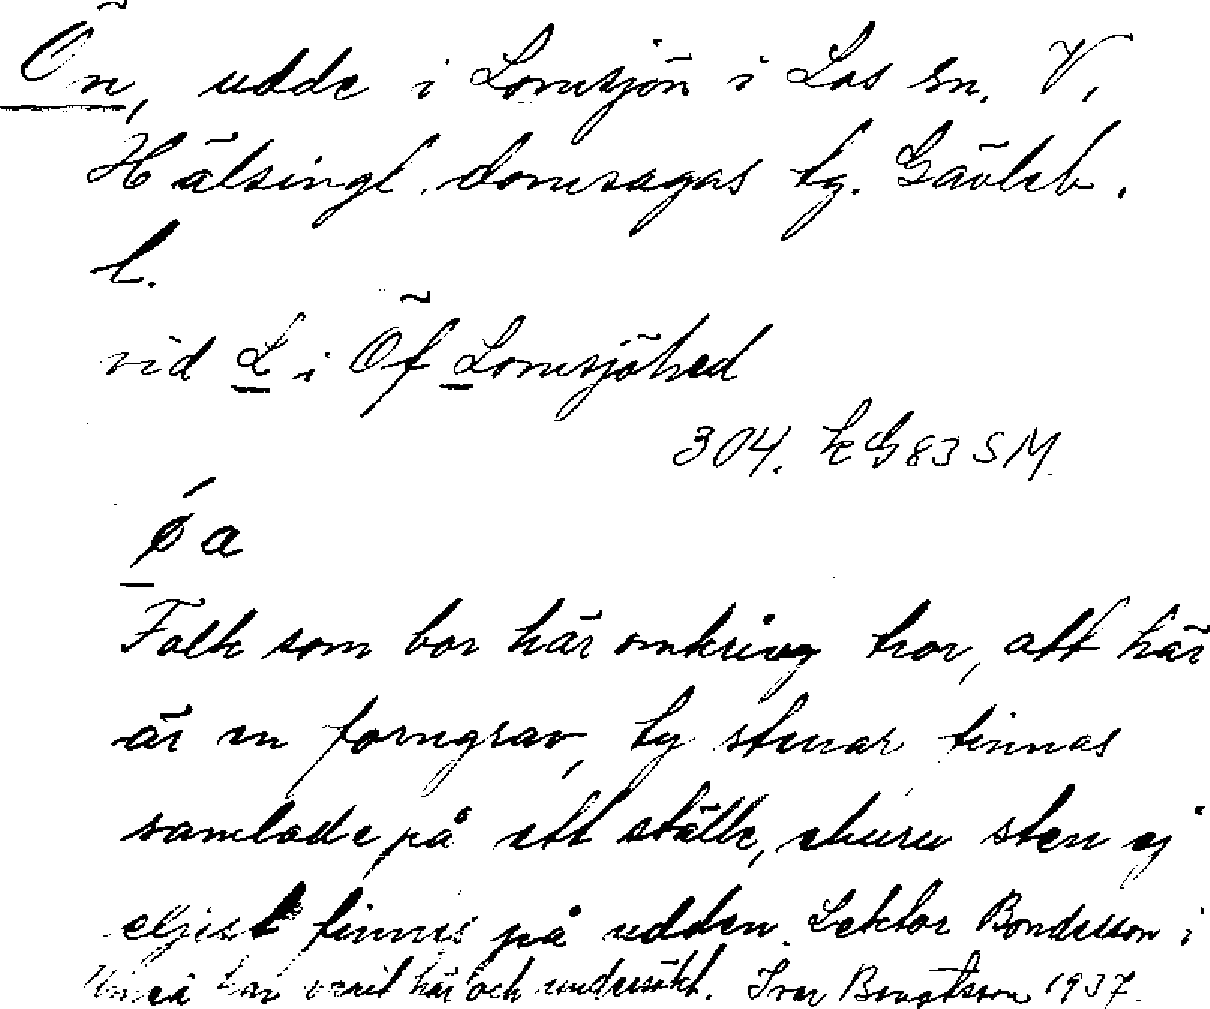 Ön, udde i Lomsjön i Los sn. V.
Hälsingl. domsagas tg. Gävleb.
l.
vid L i Öf Lomsjöhed
304. kG 83 SM
ǿa
Folk som bor här omkring tror, att här
är en forngrav, ty stenar finnas
samlade på ett ställe, ehuru sten ej
eljest finnes på udden. Lektor Bondesson i
Umeå har varit här och undersökt. Ivar Bengtsson 1937.